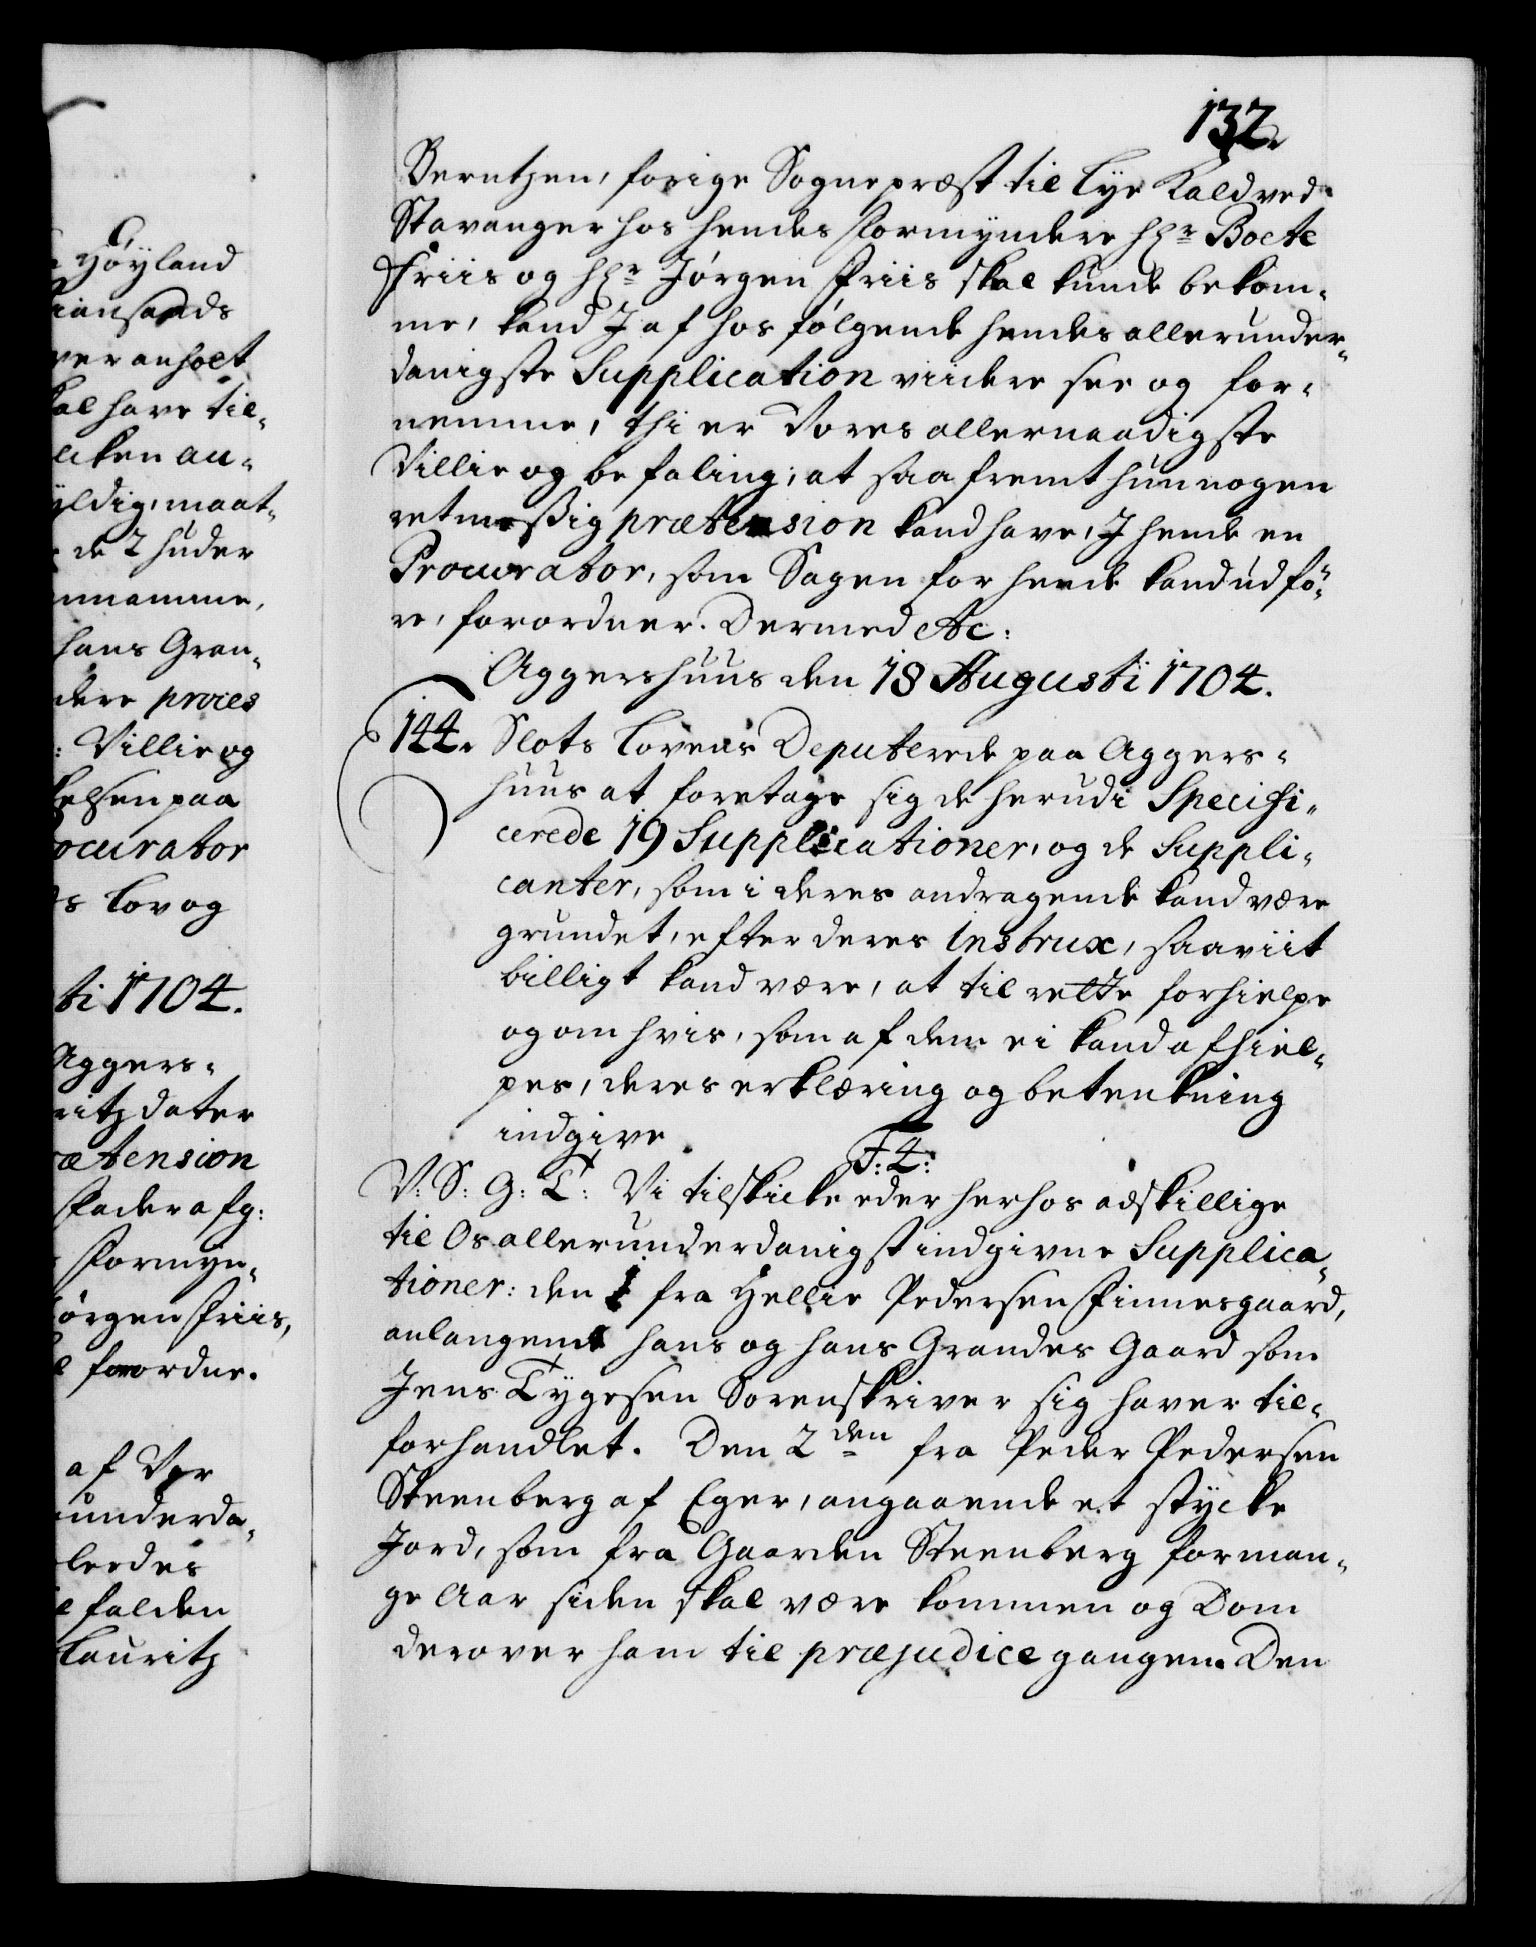 132
Berntzen, forige Sognepræst til Lye Kald ved
Stavanger hos hendes Formyndere Hr Boete
Friis og Hr Jörgen Friis skal kunde bekom-
me, kand I af hos fölgende hendes allerunder-
danigste Supplication viidere see og for-
nemme, thi er Vores allernaadigste
Villie og befaling, at saafremt hun nogen
retmessig prætension kand have, I hende en
Procurator, som Sagen for hende kand udfö-
re, forordner. Dermed &c:
Aggershuus den 18 Augusti 1704.
144. Slots Lovens Deputerede paa Aggers-
huus at foretage sig de herudi Specifi-
cerede 19 Supplicationer, og de Suppli-
canter, som i deres andragende kand være
grundet, efter deres Instrux, saaviit
billigt kand være, at til rette forhielpe
og om hvis, som af dem ei kand afhiel-
pes, deres erklæring og betenkning
indgive
F: 4:
V: S: G: T: Vi tilskicke eder herhos adskillige
til Os allerunderdanigst indgivne Supplica-
tioner: den 1 fra Hellie Pedersen Finnesgaard,
anlangende hans og hans Grandes Gaard som
Jens Tygesen Sorenskriver sig haver til-
forhandlet. Den 2den fra Peder Pedersen
Steenberg af Eger, angaaende et stycke
Jord, som fra Gaarden Steenberg for man-
ge Aar siden skal være kommen og Dom
derover ham til præjudice gangen. Den
Höyland
iansands
ver anholt
al have til-
licken an-
yldig, maat-
de 2 huder
annamme,
hans Gran-
dere proces
: Villie og
kelsen paa
ocurator
s Lov og
ti 1704.
Aggers-
ritz dater
ætension
Fader afg:
Formyn-
örgen Friis,
forordne.
af Vor
underda-
ledes
falden
Lauritz